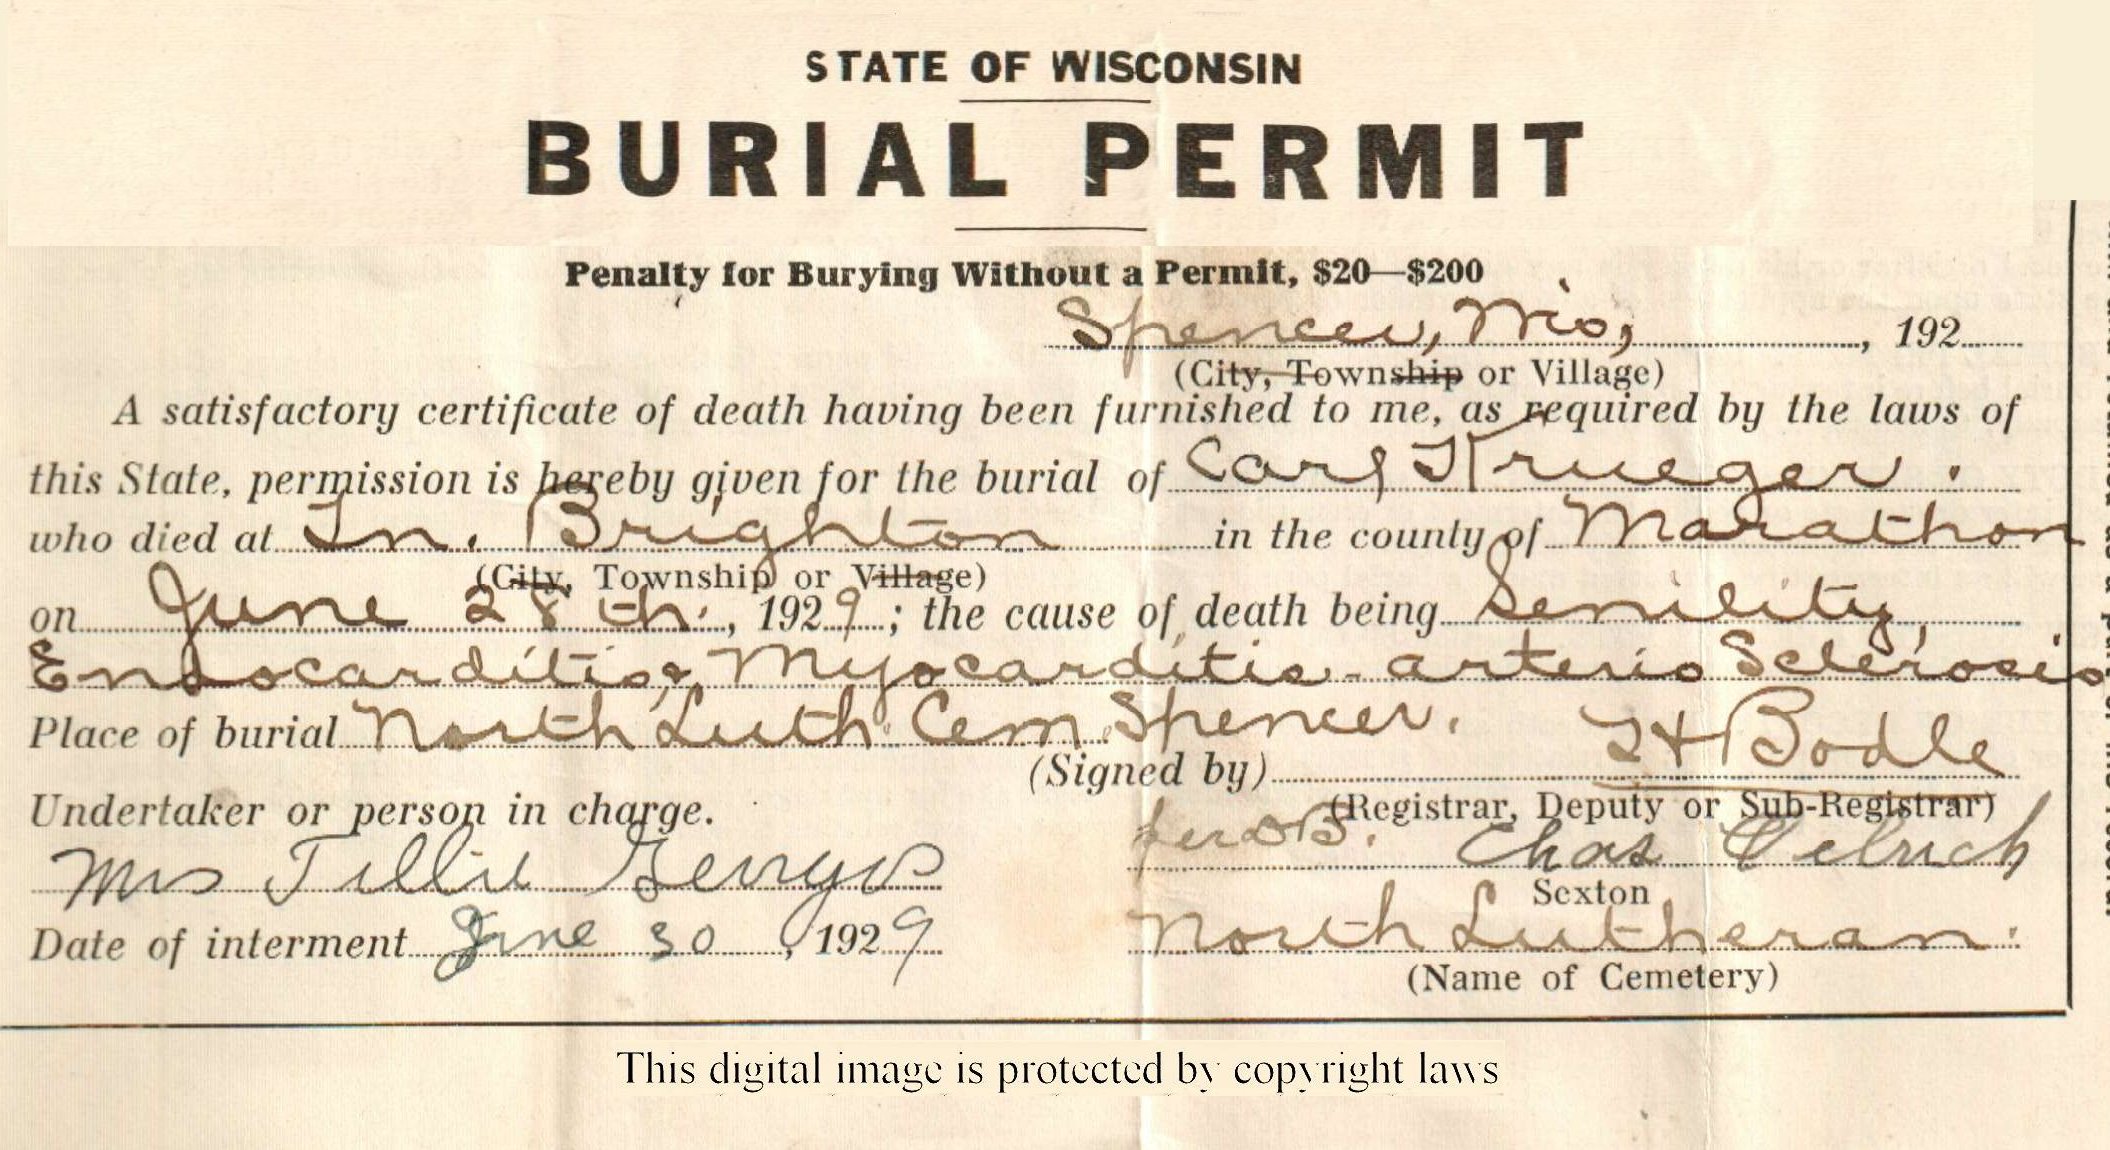 STATE OF WISCONSIN
BURIAL PERMIT
Penalty for Burying Without a Permit, $20—$200
Spencer, Wis, , 192
(City, Township or Village)
A satisfactory certificate of death having been furnished to me, as required by the laws of
this State, permission is hereby given for the burial of Carl Krueger.
who died at Tn. Brighton in the county of Marathon
(City, Township or Village)
on June 28th. , 1929 ; the cause of death being Senility,
Endocarditis & Myocarditis - arterio Sclerosis
Place of burial North Luth. Cem Spencer.
(Signed by) Bodle
(Registrar, Deputy or Sub-Registrar)
Undertaker or person in charge.
per
Mrs Tillie Chas
Sexton
Date of interment June 30 , 1929 North Lutheran.
(Name of Cemetery)
This digital image is protected by copyright laws